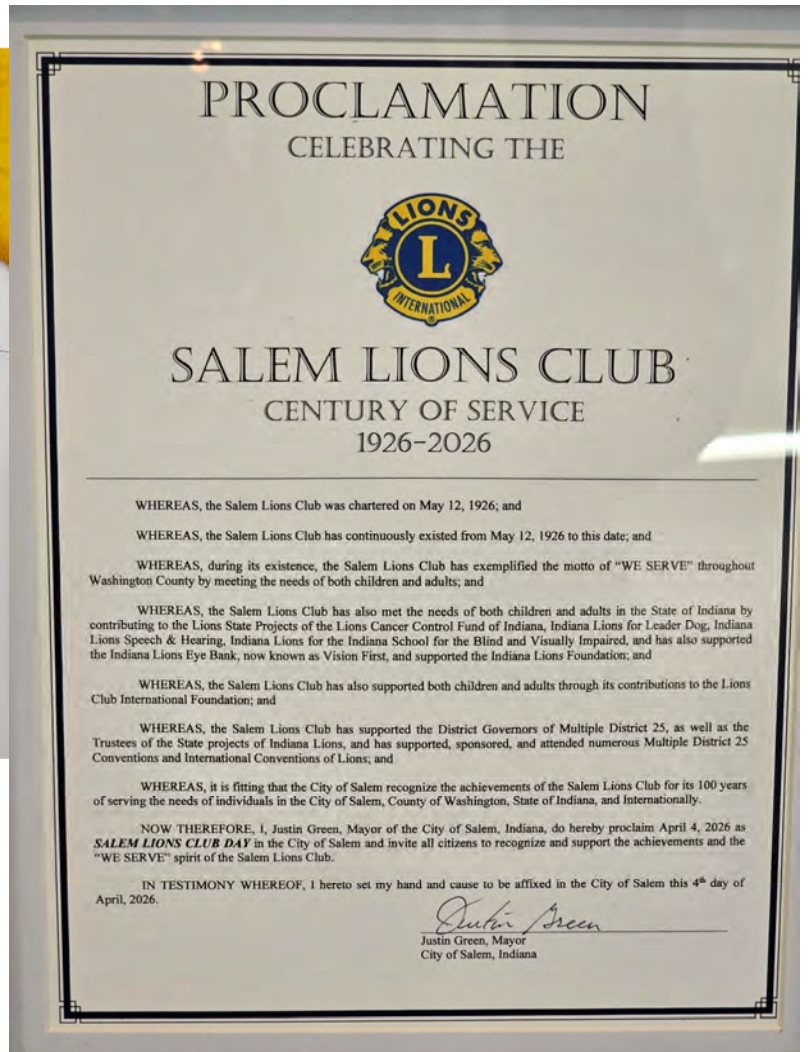 PROCLAMATION
CELEBRATING THE
LIONS
L
INTERNATIONAL
SALEM LIONS CLUB
CENTURY OF SERVICE
1926-2026
WHEREAS, the Salem Lions Club was chartered on May 12, 1926; and
WHEREAS, the Salem Lions Club has continuously existed from May 12, 1926 to this date; and
WHEREAS, during its existence, the Salem Lions Club has exemplified the motto of "WE SERVE" throughout
Washington County by meeting the needs of both children and adults; and
WHEREAS, the Salem Lions Club has also met the needs of both children and adults in the State of Indiana by
contributing to the Lions State Projects of the Lions Cancer Control Fund of Indiana, Indiana Lions for Leader Dog, Indiana
Lions Speech & Hearing, Indiana Lions for the Indiana School for the Blind and Visually Impaired, and has also supported
the Indiana Lions Eye Bank, now known as Vision First, and supported the Indiana Lions Foundation; and
WHEREAS, the Salem Lions Club has also supported both children and adults through its contributions to the Lions
Club International Foundation; and
WHEREAS, the Salem Lions Club has supported the District Governors of Multiple District 25, as well as the
Trustees of the State projects of Indiana Lions, and has supported, sponsored, and attended numerous Multiple District 25
Conventions and International Conventions of Lions; and
WHEREAS, it is fitting that the City of Salem recognize the achievements of the Salem Lions Club for its 100 years
of serving the needs of individuals in the City of Salem, County of Washington, State of Indiana, and Internationally.
NOW THEREFORE, I, Justin Green, Mayor of the City of Salem, Indiana, do hereby proclaim April 4, 2026 as
SALEM LIONS CLUB DAY in the City of Salem and invite all citizens to recognize and support the achievements and the
"WE SERVE" spirit of the Salem Lions Club.
IN TESTIMONY WHEREOF, I hereto set my hand and cause to be affixed in the City of Salem this 4th day of
April, 2026.
Justin Green
Justin Green, Mayor
City of Salem, Indiana